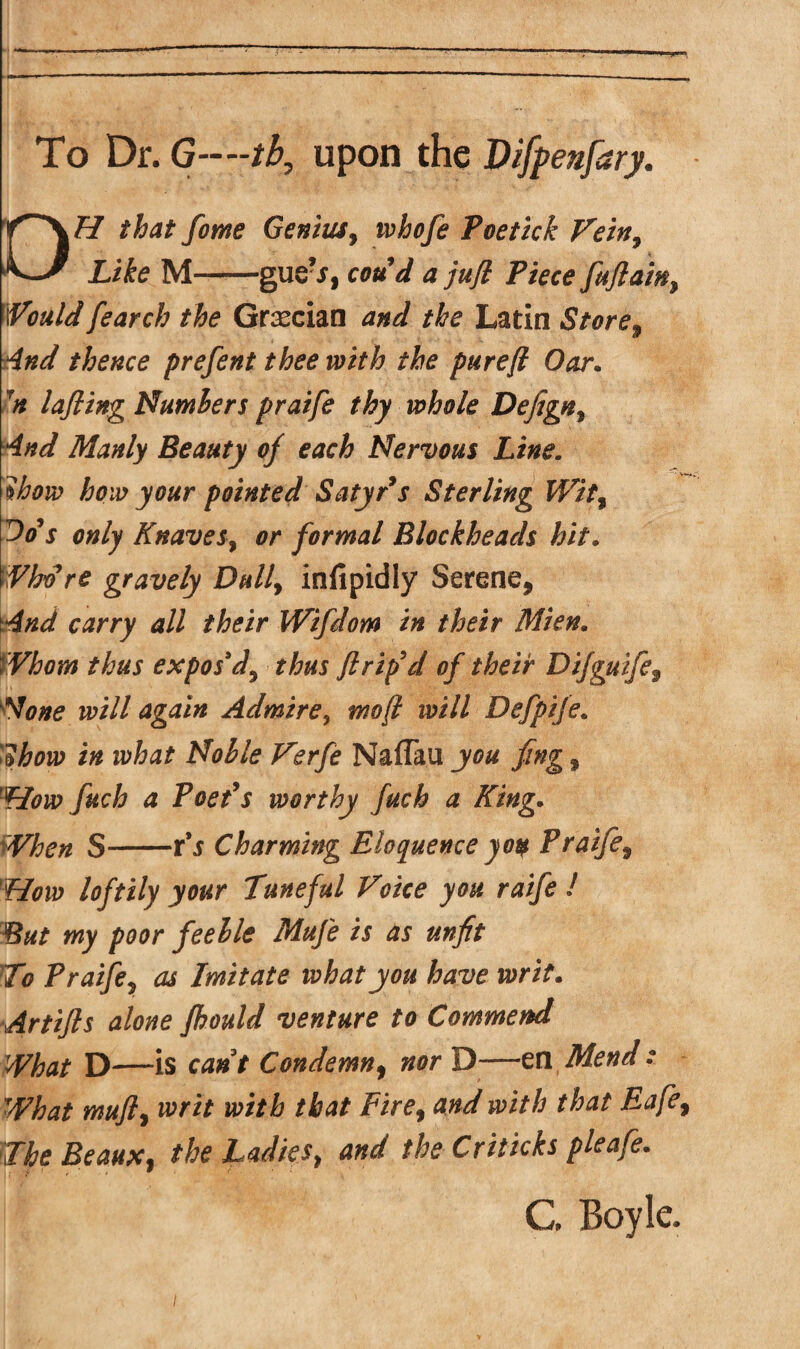 To Dr. G----th, upon the Diſpenſary.
OH that ſome Genius, whoſe Poetick Vein,
Like M——gue's, cou'd a juſt Piece ſuſtain,
Would ſearch the Græcian and the Latin Store,
And thence preſent thee with the pureſt Oar.
'n laſting Numbers praiſe thy whole Deſign,
And Manly Beauty of each Nervous Line.
Show how your pointed Satyr's Sterling Wit,
Do's only Knaves, or formal Blockheads hit.
Who're gravely Dull, inſipidly Serene,
And carry all their Wiſdom in their Mien.
Whom thus expos'd, thus ſtrip'd of their Diſguiſe,
None will again Admire, moſt will Deſpiſe.
Show in what Noble Verſe Naſſau you ſing,
How ſuch a Poet's worthy ſuch a King.
When S——r's Charming Eloquence you Praiſe,
How loftily your Tuneful Voice you raiſe !
But my poor feeble Muſe is as unfit
To Praiſe, as Imitate what you have writ.
Artiſts alone ſhould venture to Commend
What D—is can't Condemn, nor D—en Mend :
What muſt, writ with that Fire, and with that Eaſe,
The Beaux, the Ladies, and the Criticks pleaſe.
C. Boyle.